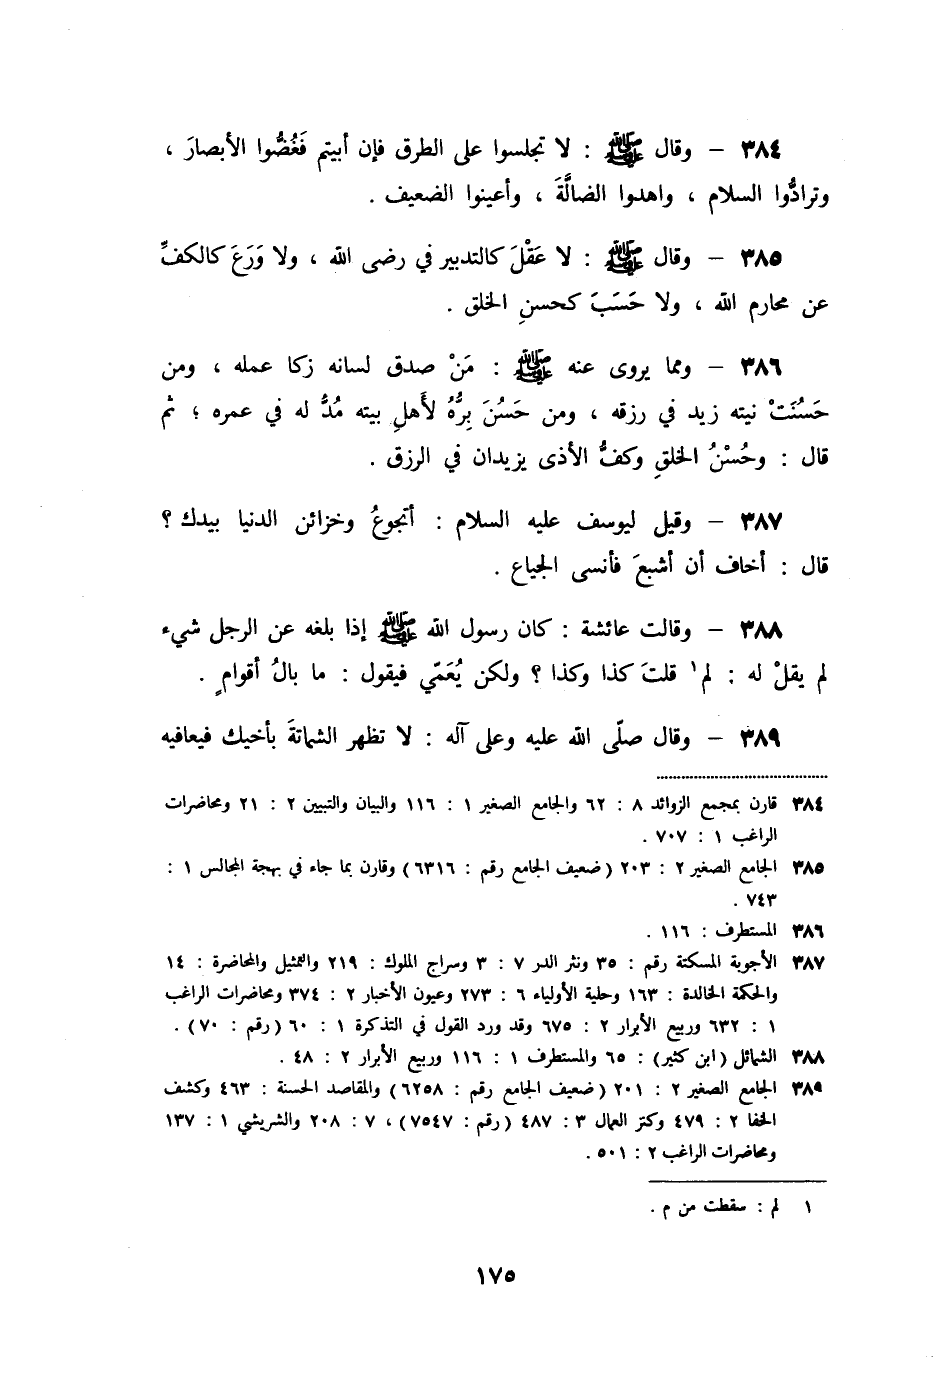 ٣٨٤ – وقال ﷺ : لا تجلسوا على الطرق فإن أبيتم فَغُضُّوا الأبصارَ ،
وترادُّوا السلام ، واهدوا الضالَّةَ ، وأعينوا الضعيف .
٣٨٥ – وقال ﷺ : لا عَقْلَ كالتدبير في رضى الله ، ولا وَرَعَ كالكفِّ
عن محارم الله ، ولا حَسَبَ كحسنِ الخلق .
٣٨٦ – ومما يروى عنه ﷺ : مَنْ صدق لسانه زكا عمله ، ومن
حَسُنَتْ نيته زيد في رزقه ، ومن حَسُنَ بِرُّهُ لأَهلِ بيته مُدَّ له في عمره ؛ ثم
قال : وحُسْنُ الخلقِ وكفُّ الأذى يزيدان في الرزق .
٣٨٧ – وقيل ليوسف عليه السلام : أتجوعُ وخزائن الدنيا بيدك ؟
قال : أخاف أن أشبعَ فأنسى الجياع .
٣٨٨ – وقالت عائشة : كان رسول الله ﷺ إذا بلغه عن الرجل شيء
لم يقلْ له : لم١ قلتَ كذا وكذا ؟ ولكن يُعَمّي فيقول : ما بالُ أقوامٍ .
٣٨٩ – وقال صلّى الله عليه وعلى آله : لا تظهر الشماتةَ بأخيك فيعافيه
٣٨٤ قارن بمجمع الزوائد ٨ : ٦٢ والجامع الصغير ١ : ١١٦ والبيان والتبيين ٢ : ٢١ ومحاضرات
الراغب ١ : ٧٠٧ .
٣٨٥ الجامع الصغير ٢ : ٢٠٣ (ضعيف الجامع رقم : ٦٣١٦) وقارن بما جاء في بهجة المجالس ١ :
٧٤٣ .
٣٨٦ المستطرف : ١١٦ .
٣٨٧ الأجوبة المسكتة رقم : ٣٥ ونثر الدر ٧ : ٣ وسراج الملوك : ٢١٩ والتمثيل والمحاضرة : ١٤
والحكمة الخالدة : ١٦٣ وحلية الأولياء ٦ : ٢٧٣ وعيون الأخبار ٢ : ٣٧٤ ومحاضرات الراغب
١ : ٦٣٢ وربيع الأبرار ٢ : ٦٧٥ وقد ورد القول في التذكرة ١ : ٦٠ (رقم : ٧٠) .
٣٨٨ الشمائل (ابن كثير) : ٦٥ والمستطرف ١ : ١١٦ وربيع الأبرار ٢ : ٤٨ .
٣٨٩ الجامع الصغير ٢ : ٢٠١ (ضعيف الجامع رقم : ٦٢٥٨) والمقاصد الحسنة : ٤٦٣ وكشف
الخفا ٢ : ٤٧٩ وكنز العمال ٣ : ٤٨٧ (رقم : ٧٥٤٧) ، ٧ : ٢٠٨ والشريشي ١ : ١٣٧
ومحاضرات الراغب ٢ : ٥٠١ .
١ لم : سقطت من م .
١٧٥